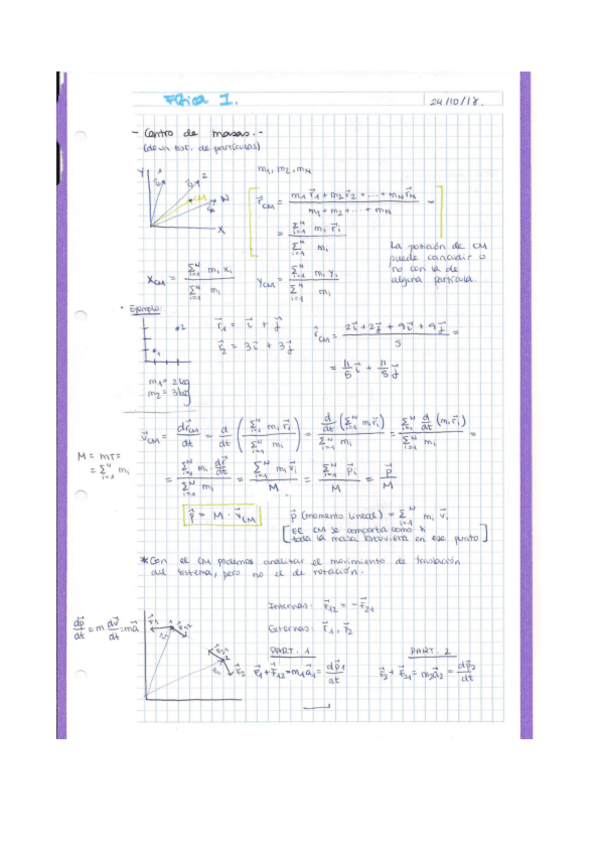 Física 1.
24/10/18.
- Centro de masas.-
(de un sist. de partículas)
Y
1
2
CM
N
X
m₁, m₂, m_N
r⃗_CM = (m₁ r⃗₁ + m₂ r⃗₂ + ... + m_N r⃗_N) / (m₁ + m₂ + ... + m_N) =
= (Σ_{i=1}^N m_i r⃗_i) / (Σ_{i=1}^N m_i)
La posición de CM
puede coincidir o
no con la de
alguna partícula.
X_CM = (Σ_{i=1}^N m_i x_i) / (Σ_{i=1}^N m_i)
Y_CM = (Σ_{i=1}^N m_i y_i) / (Σ_{i=1}^N m_i)
· Ejemplo:
2
1
m₁ = 2 kg
m₂ = 3 kg
r⃗₁ = i⃗ + j⃗
r⃗₂ = 3i⃗ + 3j⃗
r⃗_CM = (2i⃗ + 2j⃗ + 9i⃗ + 9j⃗) / 5 =
= 11/5 i⃗ + 11/5 j⃗
v⃗_CM = dr⃗_CM/dt = d/dt ((Σ_{i=1}^N m_i r⃗_i) / (Σ_{i=1}^N m_i)) = (d/dt (Σ_{i=1}^N m_i r⃗_i)) / (Σ_{i=1}^N m_i) = (Σ_{i=1}^N d/dt (m_i r⃗_i)) / (Σ_{i=1}^N m_i) =
M = m_T =
= Σ_{i=1}^N m_i
= (Σ_{i=1}^N m_i dr⃗_i/dt) / (Σ_{i=1}^N m_i) = (Σ_{i=1}^N m_i v⃗_i) / M = (Σ_{i=1}^N p⃗_i) / M = p⃗ / M
p⃗ = M · v⃗_CM
p⃗ (momento lineal) = Σ_{i=1}^N m_i v⃗_i
[El CM se comporta como si
toda la masa estuviera en ese punto]
* Con el CM podemos analizar el movimiento de traslación
del sistema, pero no el de rotación.
Internas: F⃗₁₂ = -F⃗₂₁
Externas: F⃗₁, F⃗₂
dp⃗/dt = m dv⃗/dt = ma⃗
F⃗₂
PART. 1
F⃗₁ + F⃗₁₂ = m₁a⃗₁ = dp⃗₁/dt
PART. 2
F⃗₂ + F⃗₂₁ = m₂a⃗₂ = dp⃗₂/dt